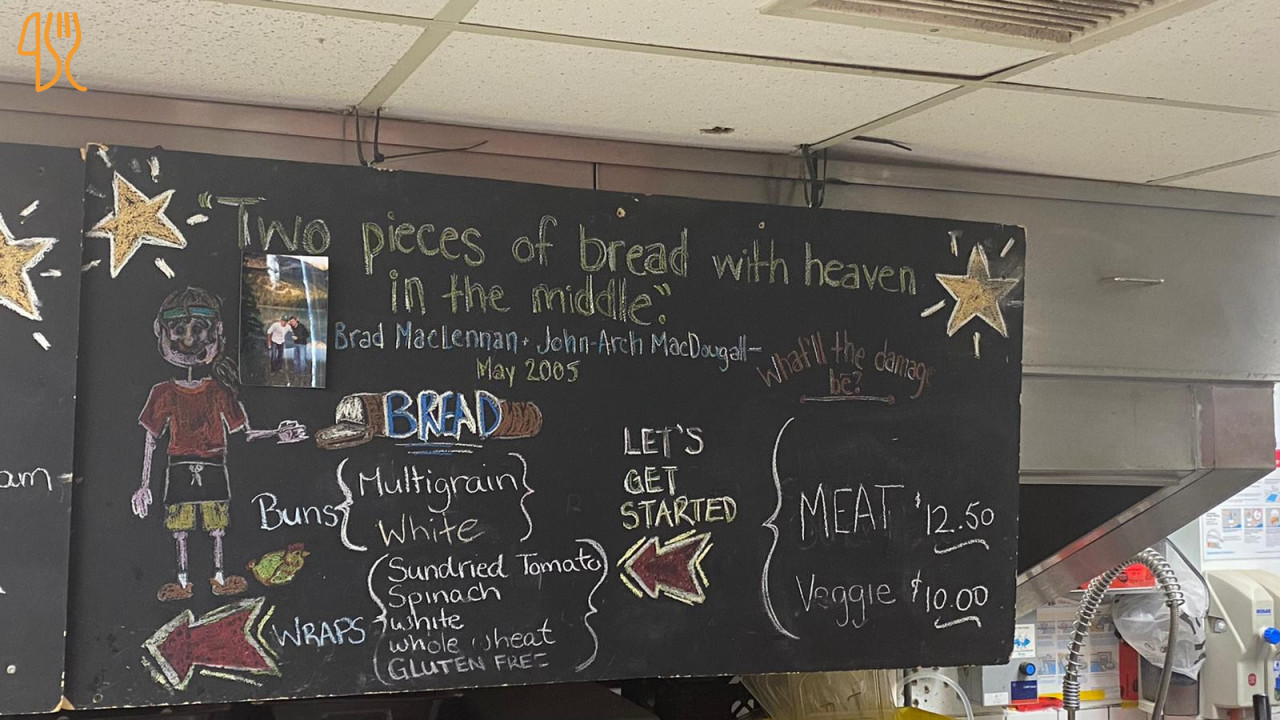 "Two pieces of bread with heaven
in the middle."
Brad MacLennan + John-Arch MacDougall—
May 2005
What'll the damage
be?
BREAD
Buns
Multigrain
White
WRAPS
Sundried Tomato
Spinach
white
whole wheat
GLUTEN FREE
LET'S
GET
STARTED
MEAT $12.50
Veggie $10.00
am